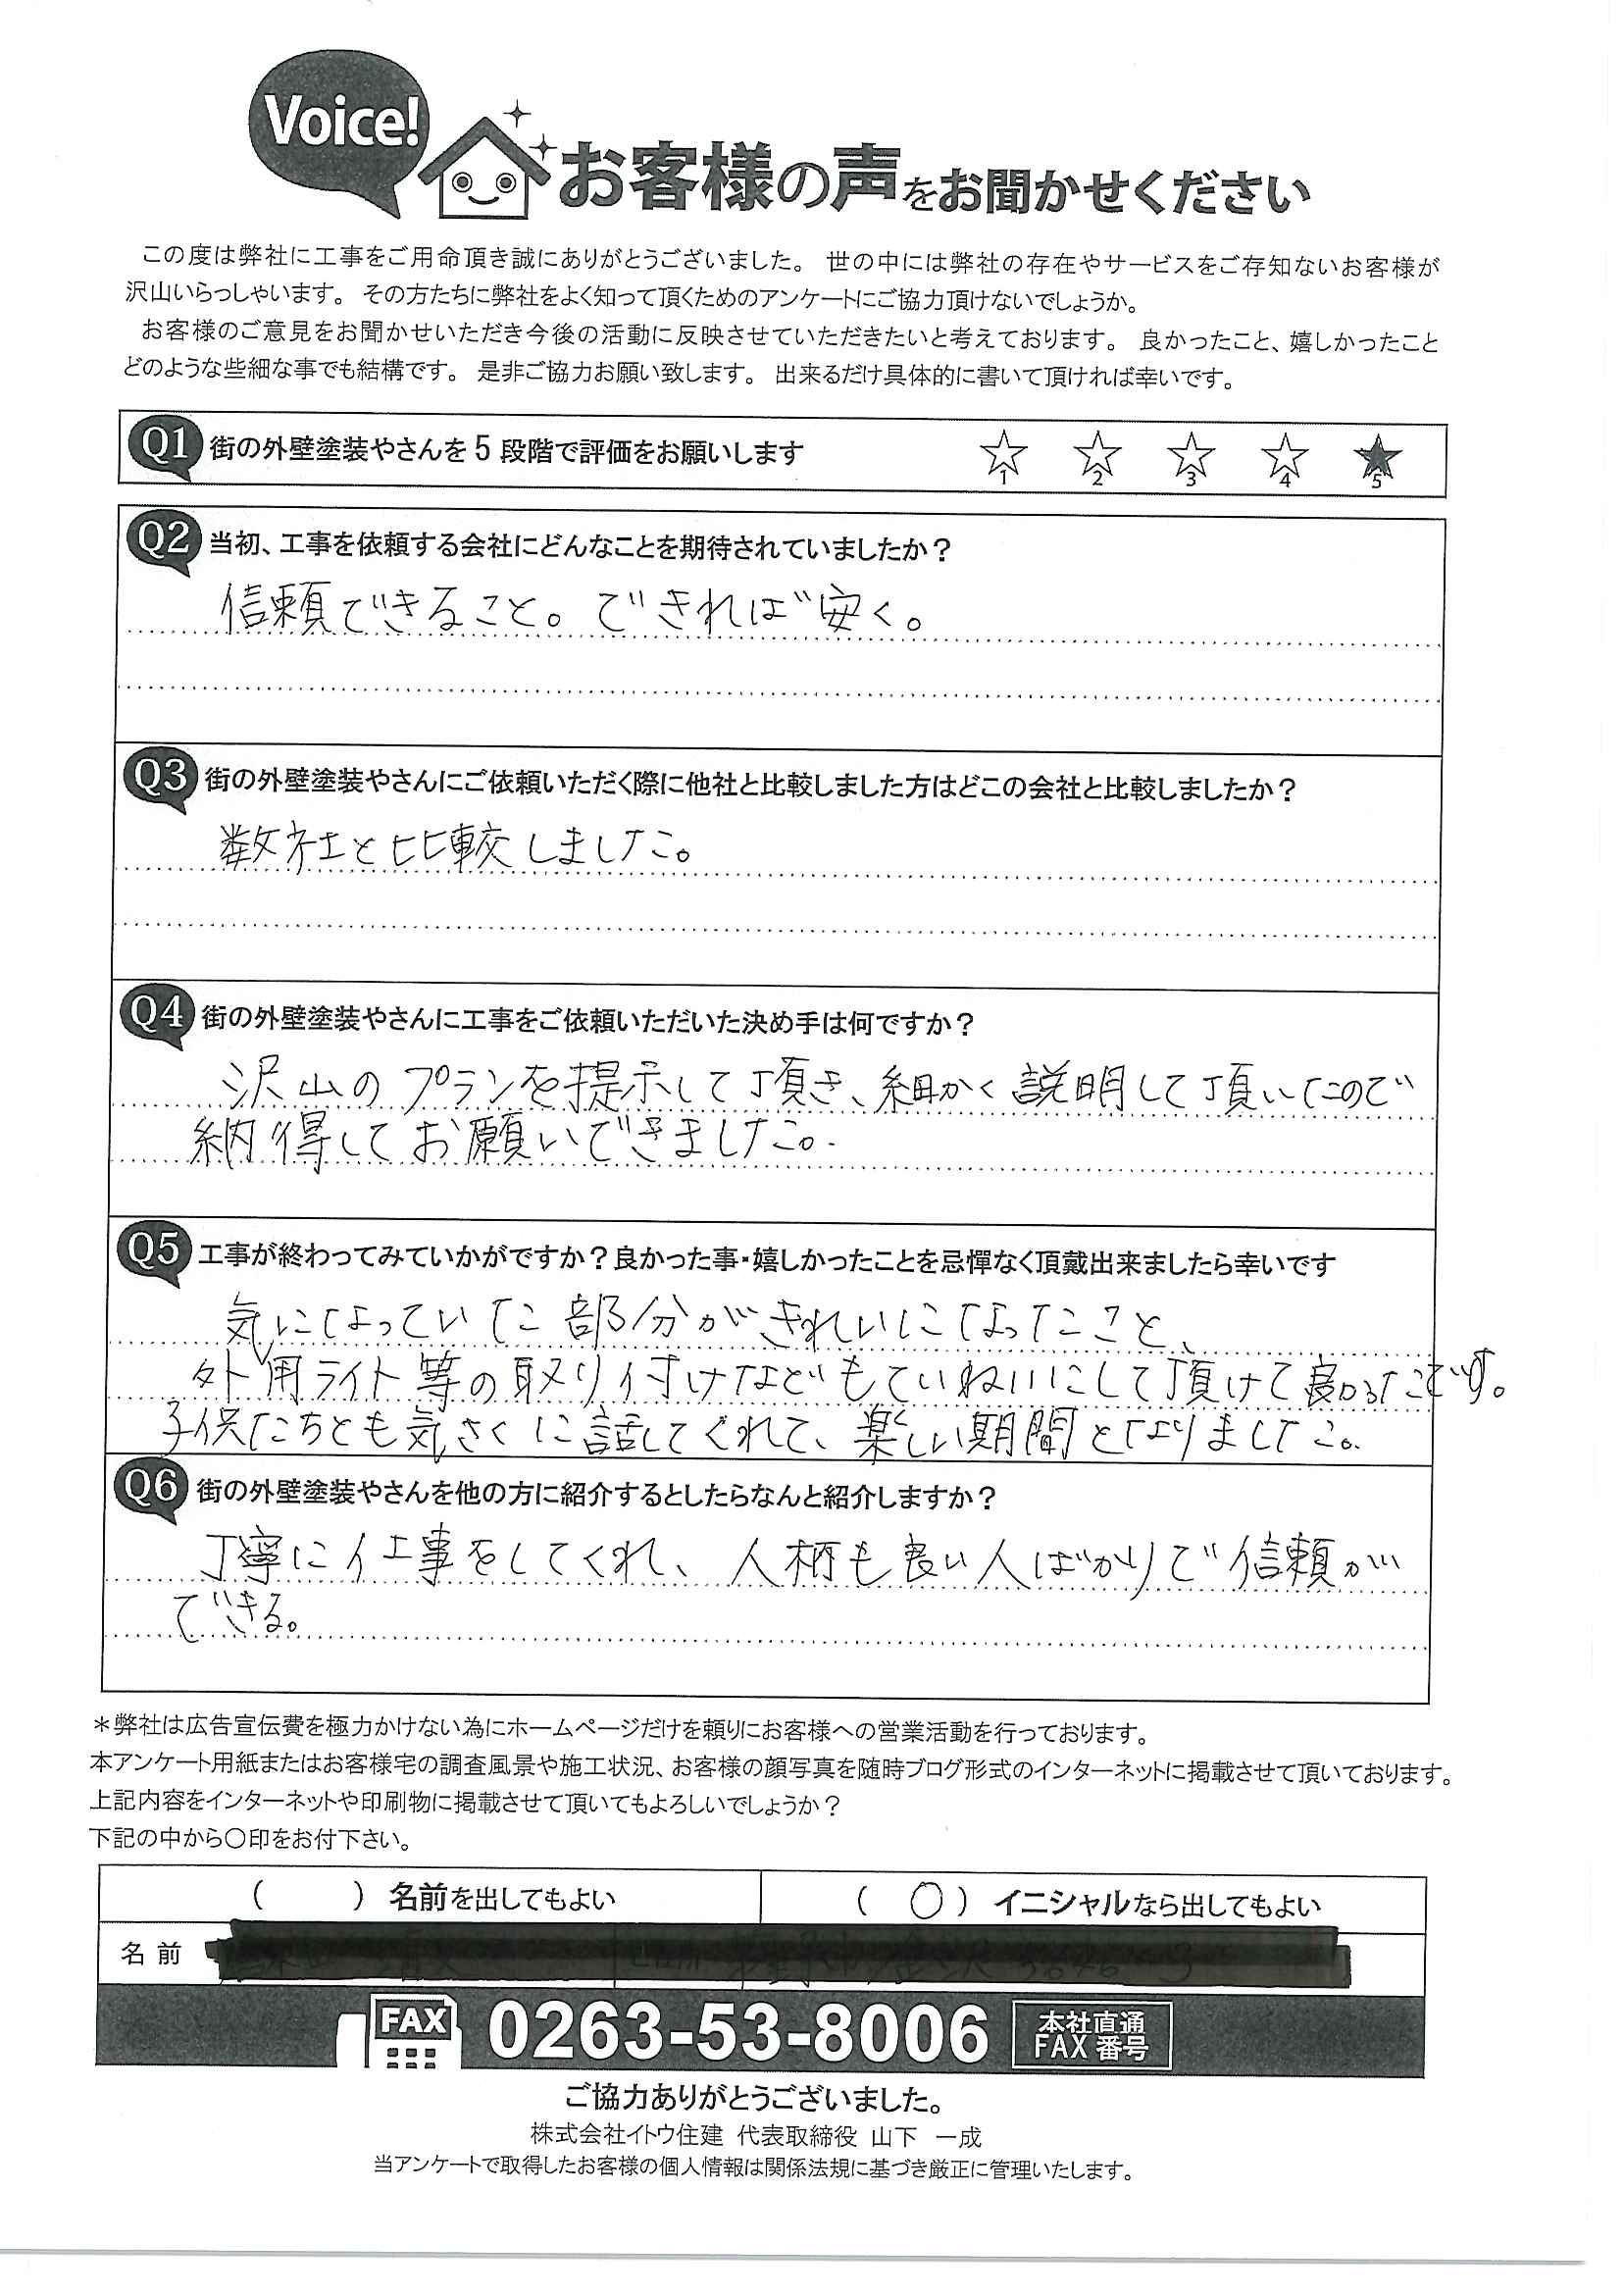 Voice!
お客様の声をお聞かせください
この度は弊社に工事をご用命頂き誠にありがとうございました。 世の中には弊社の存在やサービスをご存知ないお客様が
沢山いらっしゃいます。 その方たちに弊社をよく知って頂くためのアンケートにご協力頂けないでしょうか。
お客様のご意見をお聞かせいただき今後の活動に反映させていただきたいと考えております。 良かったこと、嬉しかったこと
どのような些細な事でも結構です。 是非ご協力お願い致します。 出来るだけ具体的に書いて頂ければ幸いです。
Q1 街の外壁塗装やさんを5段階で評価をお願いします ☆1 ☆2 ☆3 ☆4 ★5
Q2 当初、工事を依頼する会社にどんなことを期待されていましたか？
信頼できること。できれば安く。
Q3 街の外壁塗装やさんにご依頼いただく際に他社と比較しました方はどこの会社と比較しましたか？
数社と比較しました。
Q4 街の外壁塗装やさんに工事をご依頼いただいた決め手は何ですか？
沢山のプランを提示して頂き、細かく説明して頂いたので
納得してお願いできました。
Q5 工事が終わってみていかがですか？良かった事・嬉しかったことを忌憚なく頂戴出来ましたら幸いです
気になっていた部分がきれいになったこと、
外用ライト等の取り付けなどもていねいにして頂けて良かったです。
子供たちとも気さくに話してくれて、楽しい期間となりました。
Q6 街の外壁塗装やさんを他の方に紹介するとしたらなんと紹介しますか？
丁寧に仕事をしてくれ、人柄も良い人ばかりで信頼が
できる。
＊弊社は広告宣伝費を極力かけない為にホームページだけを頼りにお客様への営業活動を行っております。
本アンケート用紙またはお客様宅の調査風景や施工状況、お客様の顔写真を随時ブログ形式のインターネットに掲載させて頂いております。
上記内容をインターネットや印刷物に掲載させて頂いてもよろしいでしょうか？
下記の中から〇印をお付下さい。
（　　）名前を出してもよい （ 〇 ）イニシャルなら出してもよい
名 前
FAX 0263-53-8006 本社直通 FAX 番号
ご協力ありがとうございました。
株式会社イトウ住建 代表取締役 山下 一成
当アンケートで取得したお客様の個人情報は関係法規に基づき厳正に管理いたします。